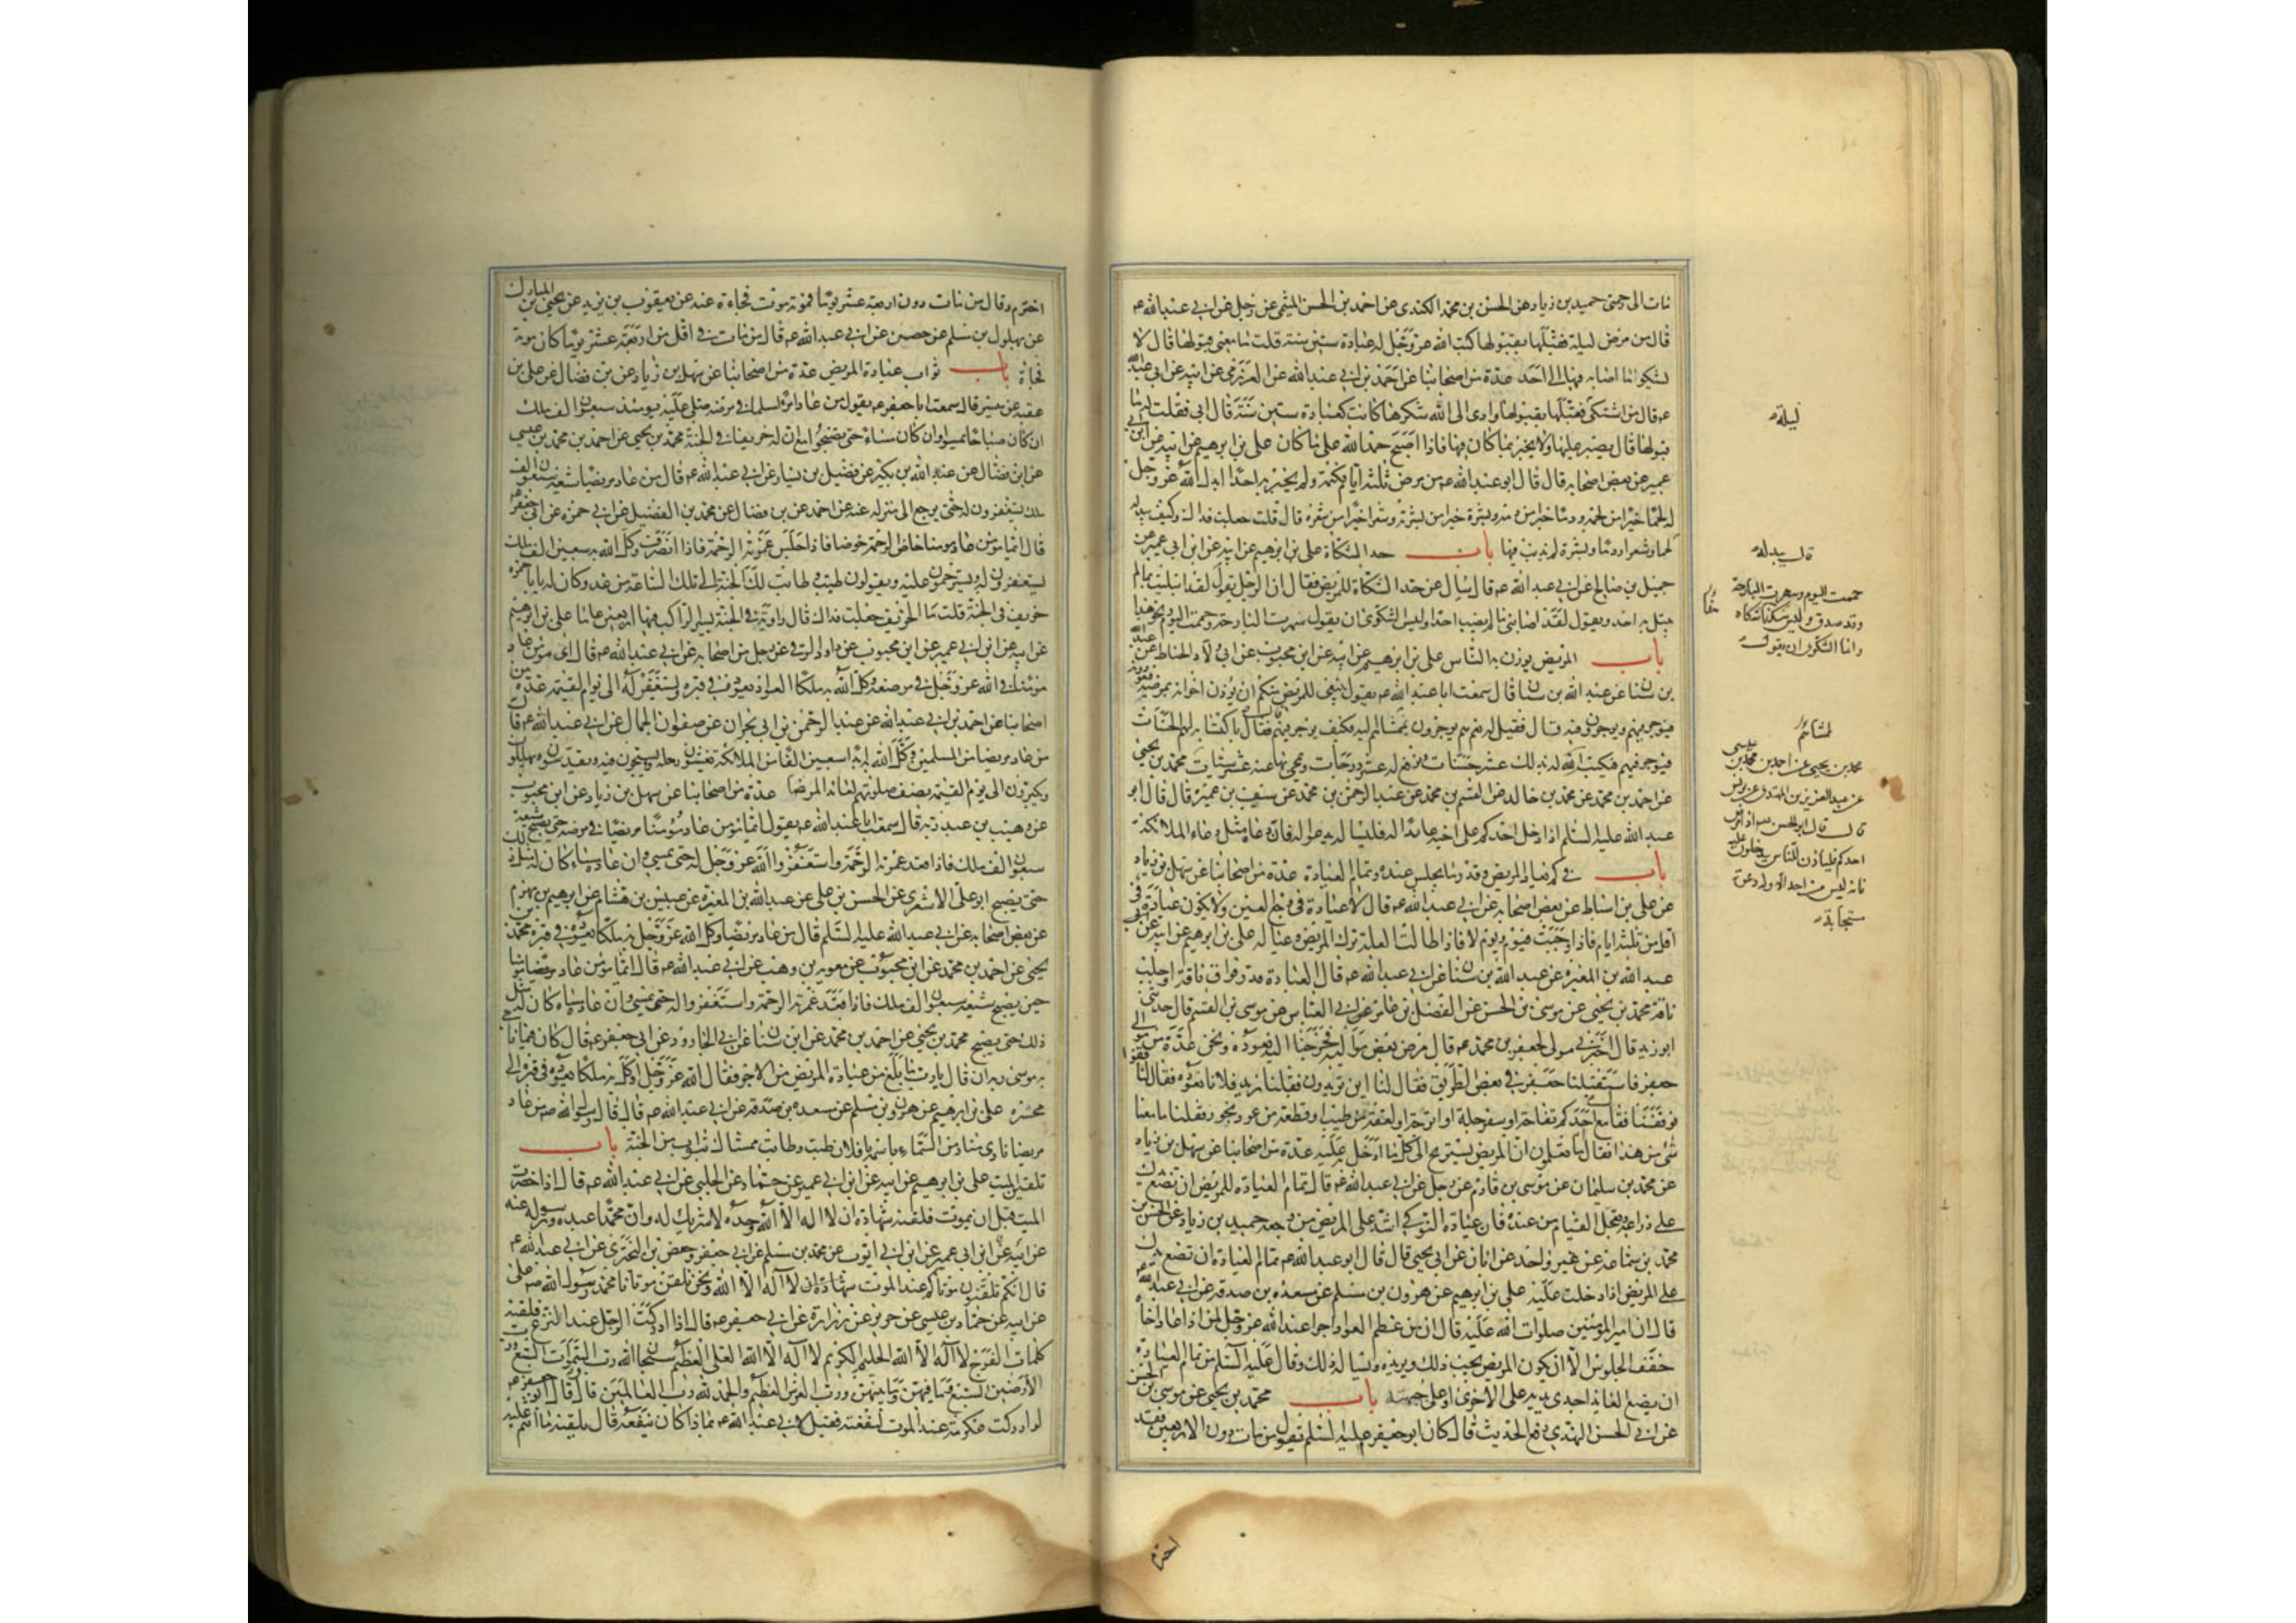 مات الى رحمتي حميد بن زياد عن الحسن بن محمد الكندي عن احمد بن الحسن الميثمي عن رجل عن ابي عبد الله ع
قال من مرض ليلة فقبلها بقبولها كتب الله عز وجل له عبادة ستين سنة قلت ما معنى قبولها قال لا
يشكو ما اصابه فيها الى احد عدة من اصحابنا عن احمد بن ابي عبد الله عن العزرمي عن ابيه عن ابي عبد الله
ع قال من اشتكى فقبلها بقبولها وادى الى الله شكرها كانت كعبادة ستين سنة قال ابي فقلت له ما
قبولها قال يصبر عليها ولا يخبر بما كان فيها فاذا اصبح حمد الله على ما كان على بن ابرهيم عن ابيه عن ابن ابي
عمير عن بعض اصحابه قال قال ابو عبد الله ع من مرض ثلثة ايام فكتمه ولم يخبر به احدا ابدل الله عز وجل
له لحما خيرا من لحمه ودما خيرا من دمه وبشرة خيرا من بشرته وشعرا خيرا من شعره قال قلت جعلت فداك وكيف يبدله
لحما وشعرا ودما وبشرة لم يذنب فيها باب حد الشكاة على بن ابرهيم عن ابيه عن ابن ابي عمير عن
جميل بن صالح عن ابي عبد الله ع قال سئل عن حد الشكاة للمريض فقال ان الرجل يقول لقد ابتليت بما لم
يبتل به احد ويقول لقد اصابني ما لم يصب احدا وليس الشكوى ان يقول سهرت البارحة وحممت اليوم ونحو هذا
باب المريض يوذن به الناس على بن ابرهيم عن ابيه عن ابن محبوب عن ابي ولاد الحناط عن عبد الله
بن سنان عن عبد الله بن سنان قال سمعت ابا عبد الله ع يقول ينبغي للمريض منكم ان يوذن اخوانه بمرضه فيعودونه
فيوجر فيهم ويوجرون فيه قال فقيل له نعم هم يوجرون بممشاهم اليه فكيف يوجر فيهم فقال باكتسابه لهم الحسنات
فيوجر فيهم فيكتب له بذلك عشر حسنات ويرفع له عشر درجات ويمحى بها عنه عشر سيئات محمد بن يحيى
عن احمد بن محمد عن محمد بن خالد عن القسم بن محمد عن عبد الرحمن بن محمد عن سيف بن عميرة قال قال ابو
عبد الله عليه السلم اذا دخل احدكم على اخيه عائدا له فليساله يدعو له فان دعاءه مثل دعاء الملائكة
باب في كم يعاد المريض وقدر ما يجلس عنده وتمام العيادة عدة من اصحابنا عن سهل بن زياد
عن على بن اسباط عن بعض اصحابه عن ابي عبد الله ع قال لا عيادة في وجع العين ولا يكون عيادة في
اقل من ثلثة ايام فاذا وجبت فيوم ويوم لا فاذا طالت العلة ترك المريض وعياله على بن ابرهيم عن ابيه عن
عبد الله بن المغيرة عن عبد الله بن سنان عن ابي عبد الله ع قال العيادة قدر فواق ناقة او حلب
ناقة محمد بن يحيى عن موسى بن الحسن عن الفضل بن عامر عن ابي العباس عن موسى بن القسم قال حدثني
ابو زيد قال اخبرني مولى لجعفر بن محمد ع قال مرض بعض مواليه فخرجنا اليه نعوده ونحن عدة من موالي
جعفر فاستقبلنا جعفر في بعض الطريق فقال لنا اين تريدون فقلنا نريد فلانا نعوده فقال لنا قفوا
فوقفنا فقال مع احدكم تفاحة او سفرجلة او اترجة او لعقة من طيب او قطعة من عود بخور فقلنا ما معنا
شيء من هذا فقال اما تعلمون ان المريض يستريح الى كل ما ادخل عليه عدة من اصحابنا عن سهل بن زياد
عن محمد بن سليمان عن موسى بن قادم عن رجل عن ابي عبد الله ع قال تمام العيادة للمريض ان تضع يدك
على ذراعه وتعجل القيام من عنده فان عيادة النوكى اشد على المريض من وجعه حميد بن زياد عن الحسن بن
محمد بن سماعة عن غير واحد عن ابان عن ابي يحيى قال قال ابو عبد الله ع تمام العيادة ان تضع يدك
على المريض اذا دخلت عليه على بن ابرهيم عن هرون بن مسلم عن مسعدة بن صدقة عن ابي عبد الله ع
قال ان امير المؤمنين صلوات الله عليه قال ان من اعظم العواد اجرا عند الله عز وجل لمن اذا عاد اخاه
خفف الجلوس الا ان يكون المريض يحب ذلك ويريده ويساله ذلك وقال عليه السلم من تمام العيادة
ان يضع العائد احدى يديه على الاخرى او على جبهته باب محمد بن يحيى عن موسى بن الحسن
عن ابي الحسن النهدي رفع الحديث قال كان ابو جعفر عليه السلم يقول من مات دون الاربعين فقد
اخترم
ليلة
قال يبدله
حممت اليوم وسهرت البارحة
وقد صدق وليس هذا شكاة
وانما الشكوى ان يقول
لمشاهم
محمد بن يحيى عن احمد بن محمد بن عيسى
عن عبد العزيز بن المهتدي عن يونس
قال قال ابو الحسن ع اذا مرض
احدكم فلياذن للناس يدخلون عليه
فانه ليس من احد الا وله دعوة
مستجابة
اخترم وقال من مات دون اربعة عشر يوما فموته موت فجاءة عنه عن يعقوب بن يزيد عن يحيى بن المبارك
عن بهلول بن مسلم عن حصين عن ابي عبد الله ع قال من مات في اقل من اربعة عشر يوما كان موته
فجاة باب ثواب عيادة المريض عدة من اصحابنا عن سهل بن زياد عن بن فضال عن على بن
عقبة عن ميسر قال سمعت ابا جعفر ع يقول من عاد امرءا مسلما في مرضه صلى عليه يومئذ سبعون الف ملك
ان كان صباحا حتى يمسوا وان كان مساء حتى يصبحوا مع ان له خريفا في الجنة محمد بن يحيى عن احمد بن محمد بن عيسى
عن ابن فضال عن عبد الله بن بكير عن فضيل بن يسار عن ابي عبد الله ع قال من عاد مريضا شيعه سبعون الف
ملك يستغفرون له حتى يرجع الى منزله عنه عن احمد عن بن فضال عن محمد بن الفضيل عن ابي حمزة عن ابي جعفر ع
قال ايما مومن عاد مومنا خاض الرحمة خوضا فاذا جلس غمرته الرحمة فاذا انصرف وكل الله به سبعين الف ملك
يستغفرون له ويسترحمون عليه ويقولون طبت وطابت لك الجنة الى تلك الساعة من غد وكان له يا با حمزة
خريف في الجنة قلت ما الخريف جعلت فداك قال زاوية في الجنة يسير الراكب فيها اربعين عاما على بن ابرهيم
عن ابيه عن ابن ابي عمير عن ابن محبوب عن داود الرقي عن رجل من اصحابه عن ابي عبد الله ع قال اى مومن عاد
مومنا في الله عز وجل في مرضه وكل الله به ملكا من العواد يعوده في قبره ويستغفر له الى يوم القيمة عدة من
اصحابنا عن احمد بن ابي عبد الله عن عبد الرحمن بن ابي نجران عن صفوان الجمال عن ابي عبد الله ع قال
من عاد مريضا من المسلمين وكل الله به ابدا سبعين الفا من الملائكة يغشون رحله ويسبحون فيه ويقدسون ويهللون
ويكبرون الى يوم القيمة نصف صلوتهم لعائد المريض عدة من اصحابنا عن سهل بن زياد عن ابن محبوب
عن وهيب بن عبد ربه قال سمعت ابا عبد الله ع يقول ايما مومن عاد مؤمنا مريضا في مرضه حتى يصبح شيعه
سبعون الف ملك فاذا قعد غمرته الرحمة واستغفروا الله عز وجل له حتى يمسي وان عاده مساء كان له مثل ذلك
حتى يصبح ابو على الاشعري عن الحسن بن على عن عبد الله بن المغيرة عن عبيس بن هشام عن ابرهيم بن مهزم
عن بعض اصحابه عن ابي عبد الله عليه السلم قال من عاد مريضا وكل الله عز وجل به ملكا يعوده في قبره محمد بن
يحيى عن احمد بن محمد عن ابن محبوب عن معوية بن وهب عن ابي عبد الله ع قال ايما مومن عاد مومنا مريضا
حين يصبح شيعه سبعون الف ملك فاذا قعد غمرته الرحمة واستغفروا له حتى يمسي وان عاده مساء كان له مثل
ذلك حتى يصبح محمد بن يحيى عن احمد بن محمد عن ابن سنان عن ابي الجارود عن ابي جعفر ع قال كان فيما ناجى
به موسى ربه ان قال يا رب ما بلغ من عيادة المريض من الاجر فقال الله عز وجل اوكل به ملكا يعوده في قبره الى
محشره على بن ابرهيم عن هرون بن مسلم عن مسعدة بن صدقة عن ابي عبد الله ع قال قال رسول الله ص من عاد
مريضا نادى مناد من السماء باسمه يا فلان طبت وطاب ممشاك بثواب من الجنة باب
تلقين الميت على بن ابرهيم عن ابيه عن ابن ابي عمير عن حماد عن الحلبي عن ابي عبد الله ع قال اذا حضرت
الميت قبل ان يموت فلقنه شهادة ان لا اله الا الله وحده لا شريك له وان محمدا عبده ورسوله عنه
عن ابيه عن ابن ابي عمير عن ابن ابي ايوب عن محمد بن مسلم عن ابي جعفر وحفص بن البختري عن ابي عبد الله ع
قال انكم تلقنون موتاكم عند الموت شهادة ان لا اله الا الله ونحن نلقن موتانا محمد رسول الله ص على
عن ابيه عن حماد بن عيسى عن حريز عن زرارة عن ابي جعفر ع قال اذا ادركت الرجل عند النزع فلقنه
كلمات الفرج لا اله الا الله الحليم الكريم لا اله الا الله العلي العظيم سبحان الله رب السموات السبع ورب
الارضين السبع وما فيهن وما بينهن ورب العرش العظيم والحمد لله رب العالمين قال وقال ابو جعفر ع
لو ادركت عكرمة عند الموت لنفعته فقيل لابي عبد الله ع بماذا كان ينفعه قال يلقنه ما انتم عليه